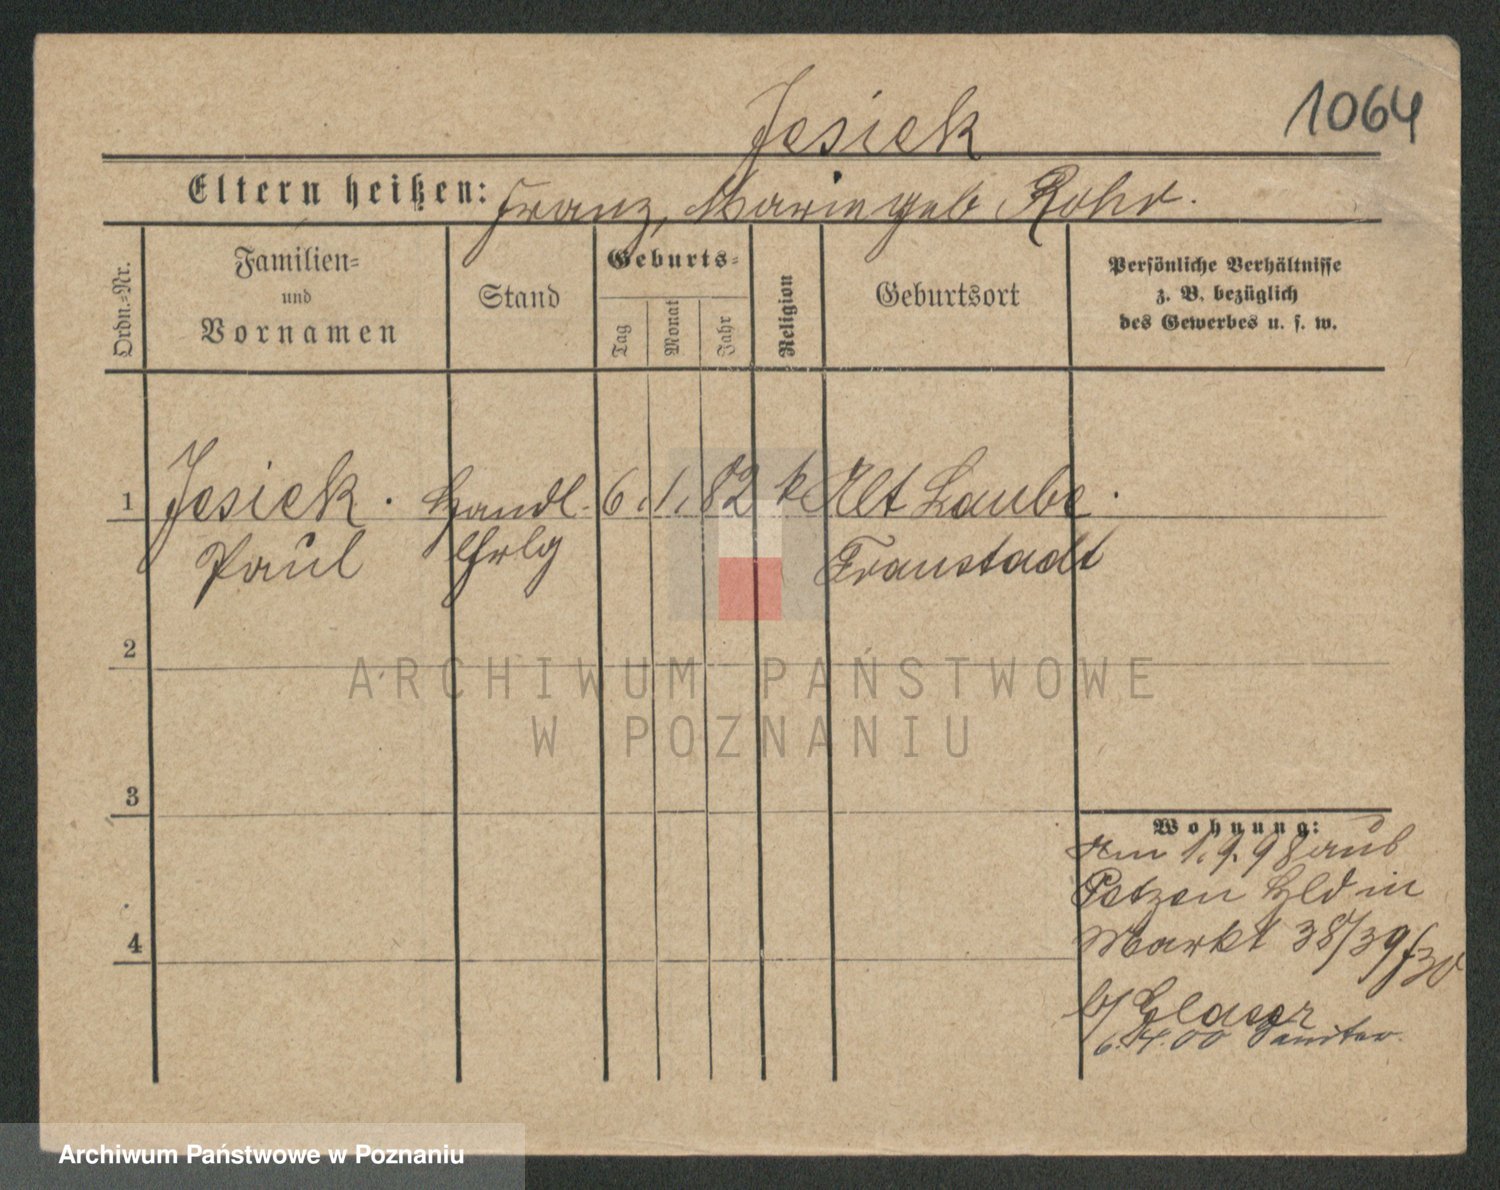 1064
Jesiek
Eltern heißen: Franz, Marie geb Rohr.
Ordn.=Nr.
Familien=
und
Vornamen
Stand
Geburts=
Tag
Monat
Jahr
Religion
Geburtsort
Persönliche Verhältnisse
z. B. bezüglich
des Gewerbes u. s. w.
1 Jesiek. Handl. 6. 1. 82 k Alt Laube.
Paul Lhrlg Fraustadt
2
ARCHIWUM PAŃSTWOWE
W POZNANIU
3
Wohnung:
Am 1. 9. 98 aus
Petzen in
Markt 38/39
b/ Glaser
6. 4. 00
4
Archiwum Państwowe w Poznaniu